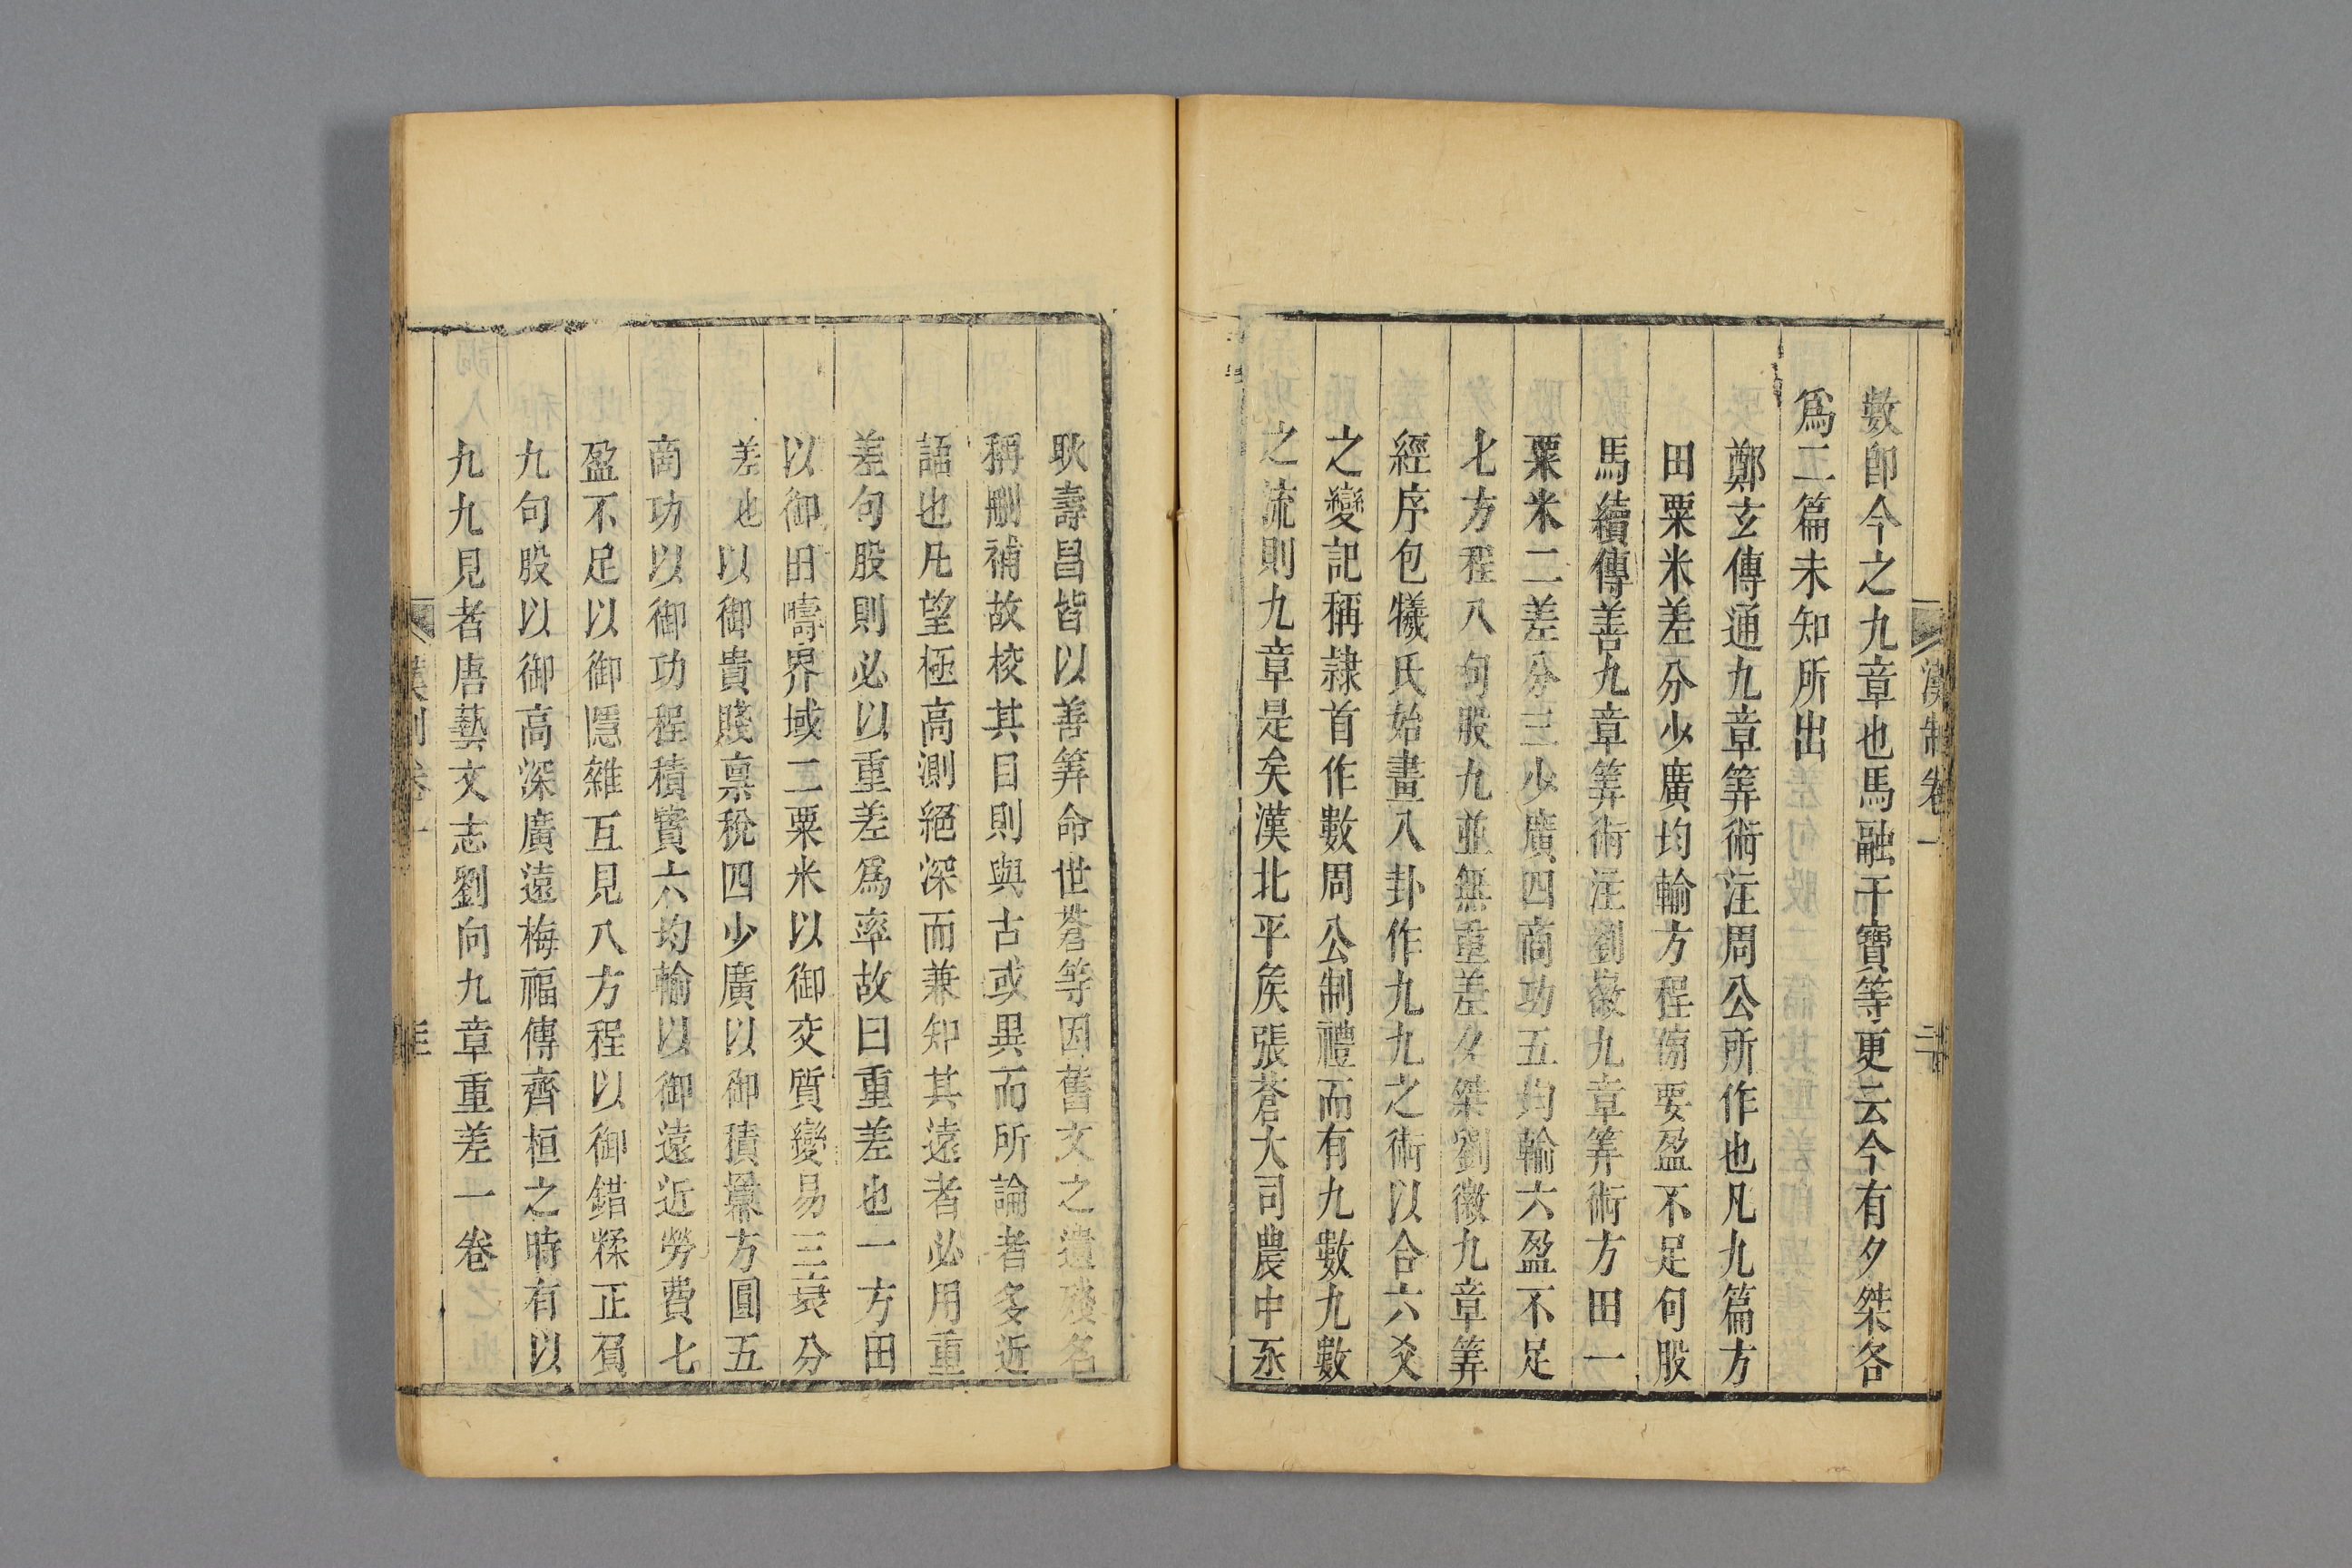 漢制卷一
二十
數卽今之九章也馬融干寶等更云今有夕桀各
爲二篇未知所出
鄭玄傳通九章筭術注周公所作也凡九篇方
田粟米差分少廣均輸方程傍要盈不足句股
馬續傳善九章筭術注劉徽九章筭術方田一
粟米二差分三少廣四商功五均輸六盈不足
七方程八句股九並無重差夕桀劉徽九章筭
經序包犧氏始畫八卦作九九之術以合六爻
之變記稱隷首作數周公制禮而有九數九數
之流則九章是矣漢北平矦張蒼大司農中丞
耿壽昌皆以善筭命世蒼等因舊文之遺殘名
稱刪補故校其目則與古或異而所論者多近
語也凡望極高測絕深而兼知其遠者必用重
差句股則必以重差爲率故曰重差也一方田
以御田疇界域二粟米以御交質變易三衰分
差也以御貴賤禀稅四少廣以御積羃方圓五
商功以御功程積實六均輸以御遠近勞費七
盈不足以御隱雜互見八方程以御錯糅正負
九句股以御高深廣遠梅福傳齊桓之時有以
九九見者唐藝文志劉向九章重差一卷